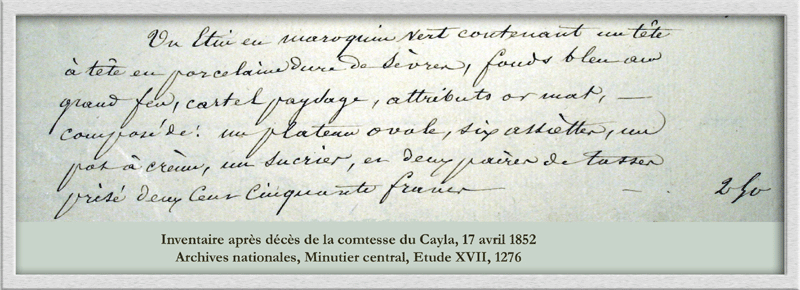 Un Etui en maroquin vert contenant un tête
à tête en porcelaine dure de Sèvres, fonds bleu au
grand feu, cartel paysage, attributs or mat, —
composé de : un plateau ovale, six assiettes, un
pot à crême, un sucrier, et deux paires de tasses
prisé deux Cent Cinquante francs — — 250
Inventaire après décès de la comtesse du Cayla, 17 avril 1852
Archives nationales, Minutier central, Etude XVII, 1276